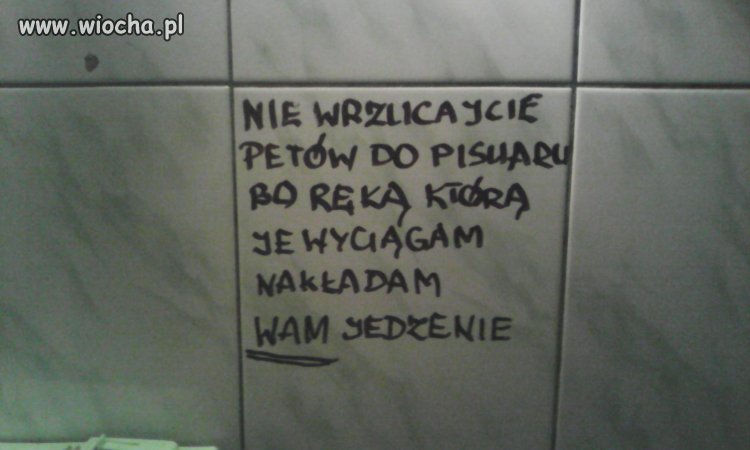 www.wiocha.pl
NIE WRZUCAJCIE
PETÓW DO PISUARU
BO RĘKĄ KTÓRĄ
JE WYCIĄGAM
NAKŁADAM
WAM JEDZENIE